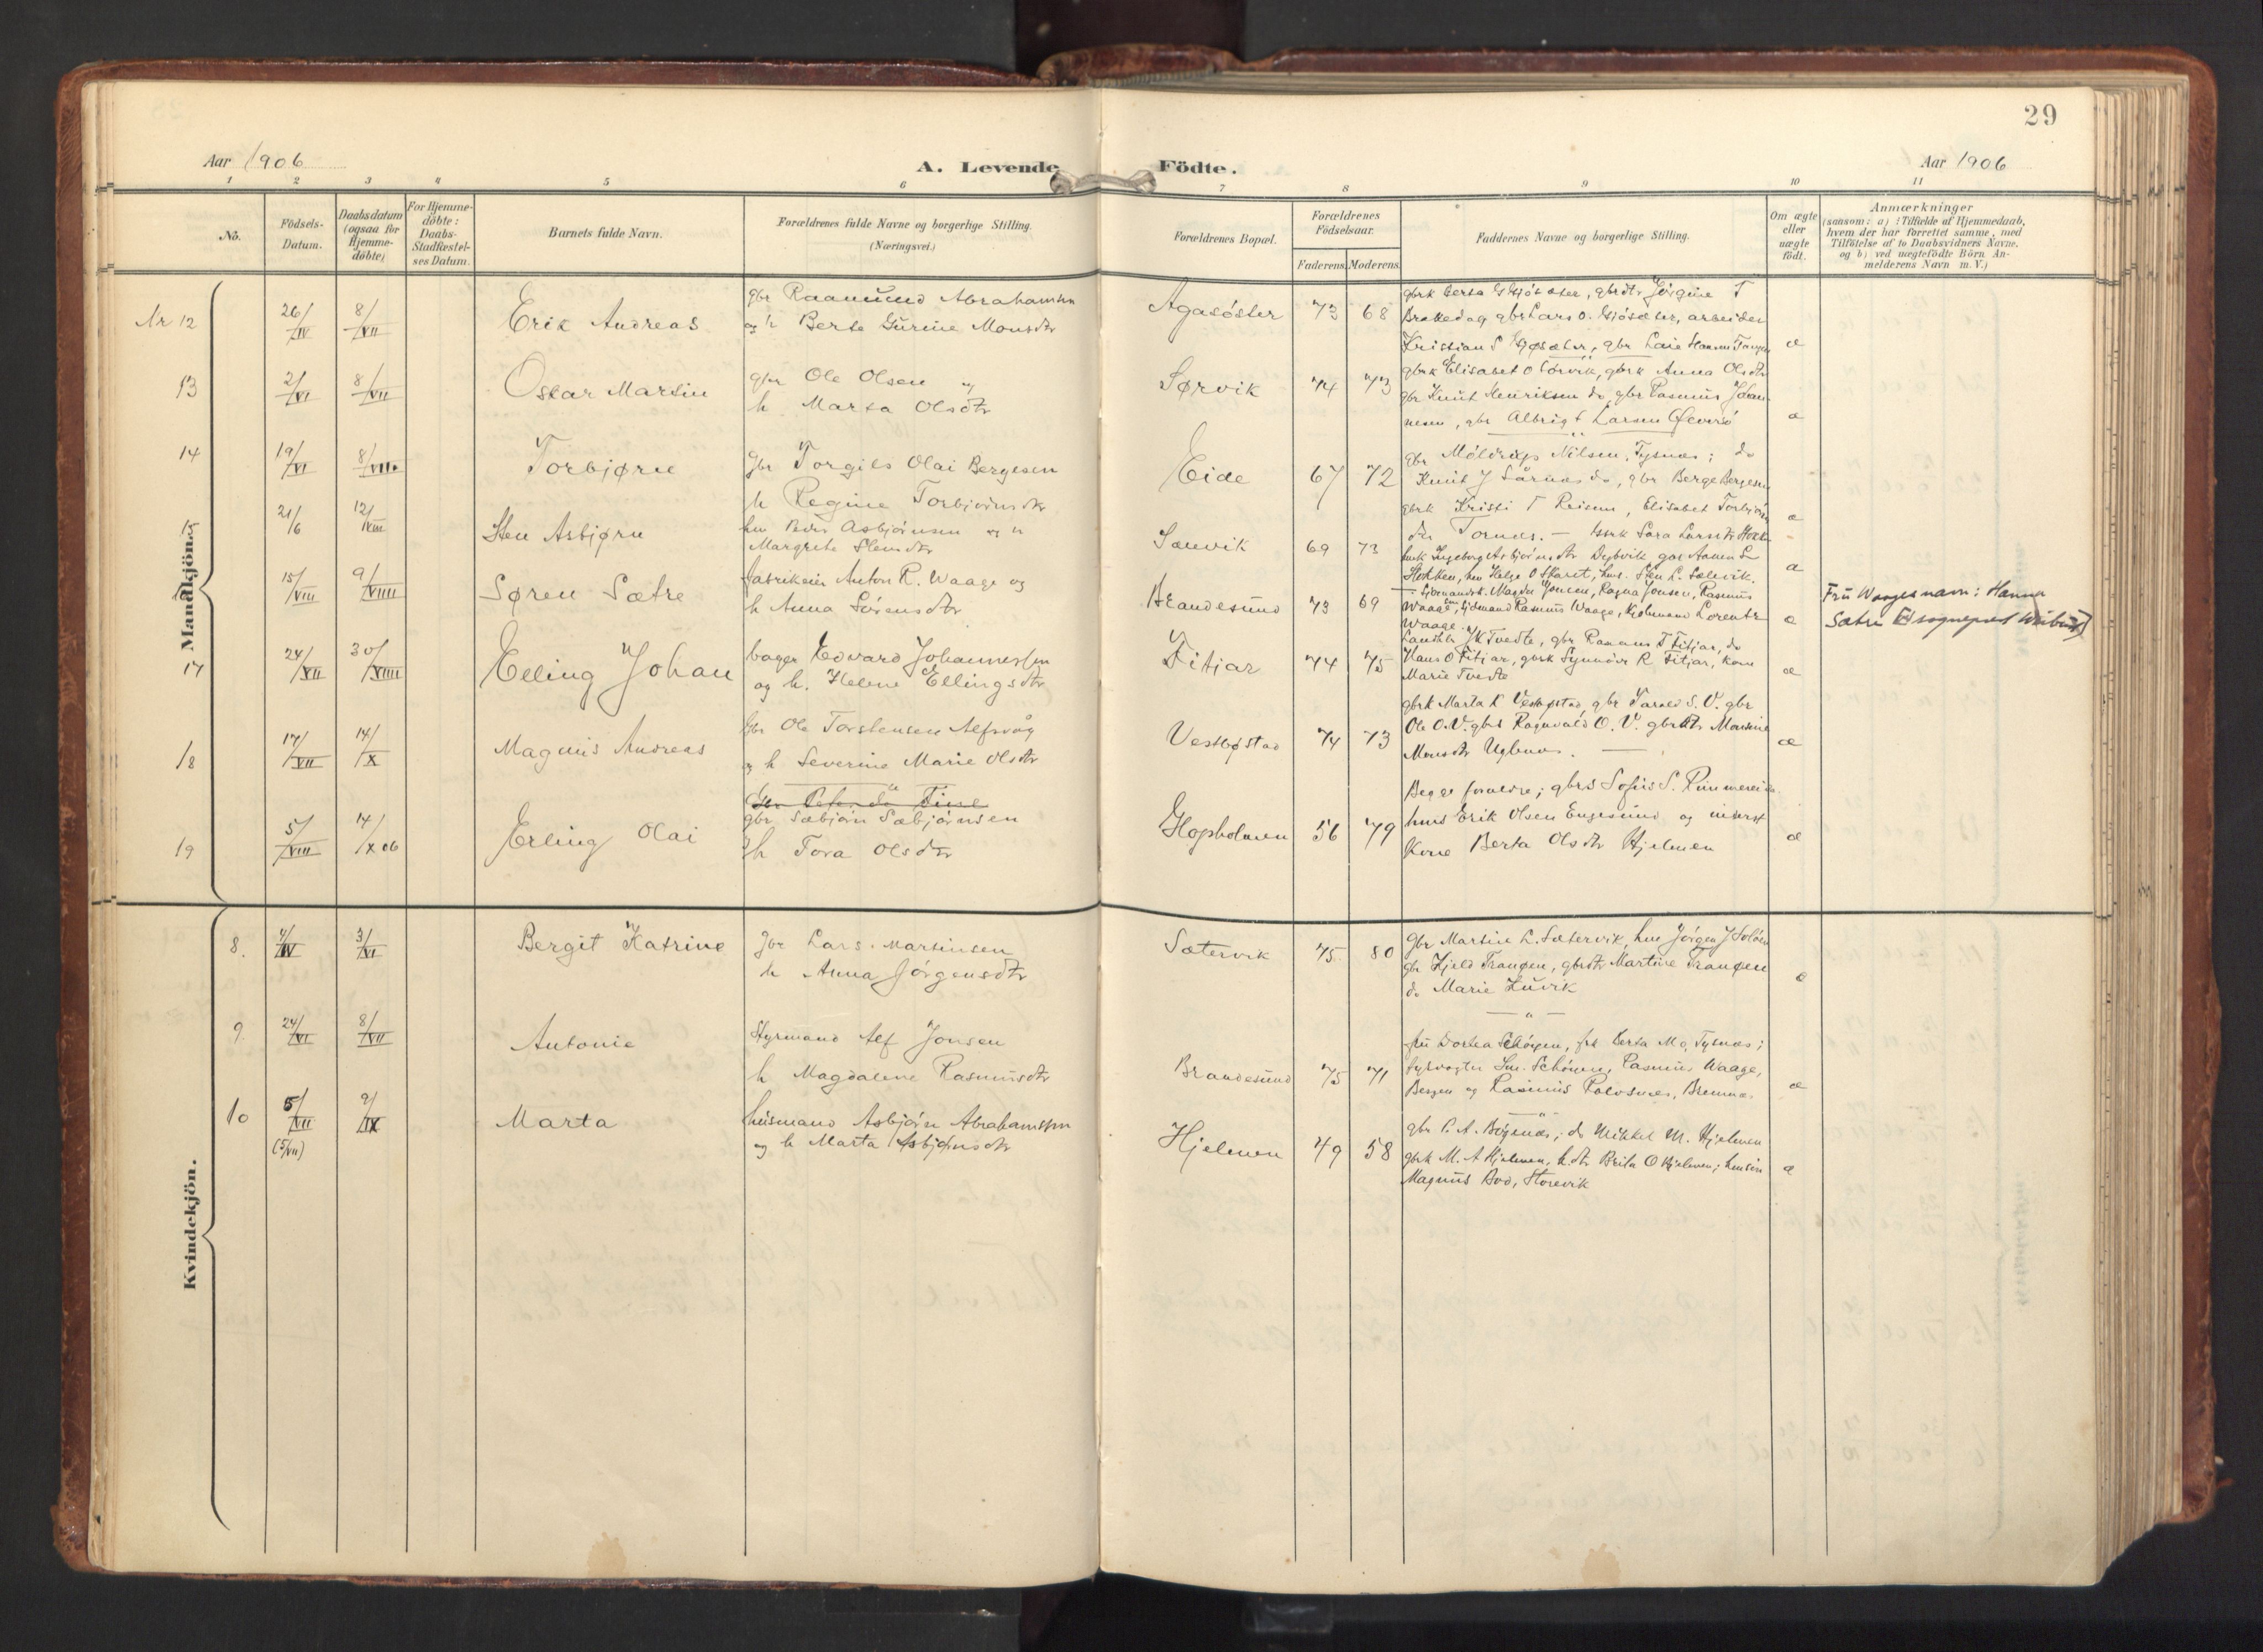 29
Aar 1906
A. Levende Födte.
Aar 1906
1 2 3 4 5 6 7 8 9 10 11
No.
Födsels-
Datum.
Daabsdatum
(ogsaa for
Hjemme-
döbte)
For Hjemme-
döbte:
Daabs-
Stadfæstel-
ses Datum.
Barnets fulde Navn.
Forældrenes fulde Navne og borgerlige Stilling.
(Næringsvei.)
Forældrenes Bopæl.
Forældrenes
Födselsaar.
Faderens. Moderens.
Faddernes Navne og borgerlige Stilling.
Om ægte
eller
uægte
födt.
Anmærkninger
(saasom: a) i Tilfælde af Hjemmedaab,
hvem der har forrettet samme, med
Tilföielse af to Daabsvidners Navne,
og b) ved uægtefödte Börn An-
melderens Navn m. V.)
Mandkjön.
Nr 12
26/IV
8/VII
Erik Andreas
gbr Rasmund Abrahamsen
og h Berte Gurine Monsdtr
Agasøster
73
68
gbrk Berta Gjøsæter, gbrdtr Jørgine T
Brakedag gbr Lars O. Gjøsæter, arbeider
Kristian S Gjøsæter, gbr Laie Hansen
æ
13
2/VI
8/VII
Oskar Martin
gbr Ole Olsen og
h Marta Olsdtr
Sørvik
74
73
gbrk Elisabet O Sørvik, gbrk Anna Olsdtr
gbr Knut Henriksen do, gbr Rasmus Johan-
nesen, gbr Albrigt Larsen
æ
14
19/VI
8/VII
Torbjørn
gbr Torgils Olai Bergesen
h Regine Torbjørnsdtr
Eide
67
72
gbr Nilsen, Tysnæs; do
Knut J Sårnæs do, gbr Berge Bergesen
gbrk Kristi T Reisen, Elisabet Torbjørns
dtr Tornes.
æ
15
21/6
12/VIII
Sten Asbjørn
hm Peder Asbjørnsen og h
Margrete Stensdtr
Sanvik
69
73
husk Sara Larsdtr
husk Ingeborg Asbjørnsdtr Dybvik
Stokken, hm Helge O Skaret, hus. Sten L. Sælevik.
æ
15/VIII
9/VIIII
Søren Sætre
fabrikeier Anton R. Waage og
h Anna Sørensdtr
Brandesund
73
69
Magda Jonsen, Ragna Jonsen, Rasmus
Waage, Rasmus Waage, Kjøbmand Lorentz
Waage
æ
Frü Waages navn: Hanna
Sætre sognepræst
17
24/VII
30/VIIII
Elling Johan
bager Edvard Johannessen
og h. Helene Ellingsdtr
Fitjar
74
75
Landh. J K Tvedte, gbr Rasmus T Fitjar, do
Hans O Fitjar, gbrk Synnöve R Fitjar, kone
Marie Tvedte
æ
18
17/VII
14/X
Magnus Andreas
gbr Ole Torstensen Alfsvåg
og h Severine Marie Olsdtr
Vestbøstad
74
73
gbrk Marta K Vestbøstad, gbr Tarald S. V. gbr
Ole O. V. gbrs Ragnvald O. V. gbrdtr Monsine
Monsdtr Uglenæs.
æ
19
5/VIII
14/X 06
Erling Olai
gbr Sæbjørn Sæbjørnsen
h Tora Olsdtr
Hopholmen
56
79
Begge forældre; gbrs Sofus S. Rimmereide
hus Erik Olsen Engesund og inderst
Kone Berta Olsdtr Hjelmen
æ
Kvindekjön.
8.
4/IV
3/VI
Bergit Katrine
gbr Lars. Martinsen
h Anna Jørgensdtr
Sætervik
75
80
gbr Martin L. Sætervik, hm Jørgen J
gbr Kjeld Trangøen, gbrdtr Martine Trangøen
do Marie Husvik
æ
9.
24/VI
8/VII
Antonie
Styrmand Alf Jonsen
h Magdalene Rasmusdtr
Brandesund
75
71
frü Dortea Schönjen, frk Berta Mo, Tysnæs;
fyrvogter Sm. Schönjen, Rasmus Waage,
Bergen og Rasmus, Bremnæs
æ
10
5/VII
(5/VII)
9/IX
Marta
husmand Asbjørn Abrahamsen
og h Marta Asbjørnsdtr
Hjelmen
49
58
gbr P. A. Bøgenæs; do Mikkel M. Hjelmen
gbrk M. A Hjelmen, h.dtr Brita O Hjelmen;
Magnus Bod, Storevik
æ